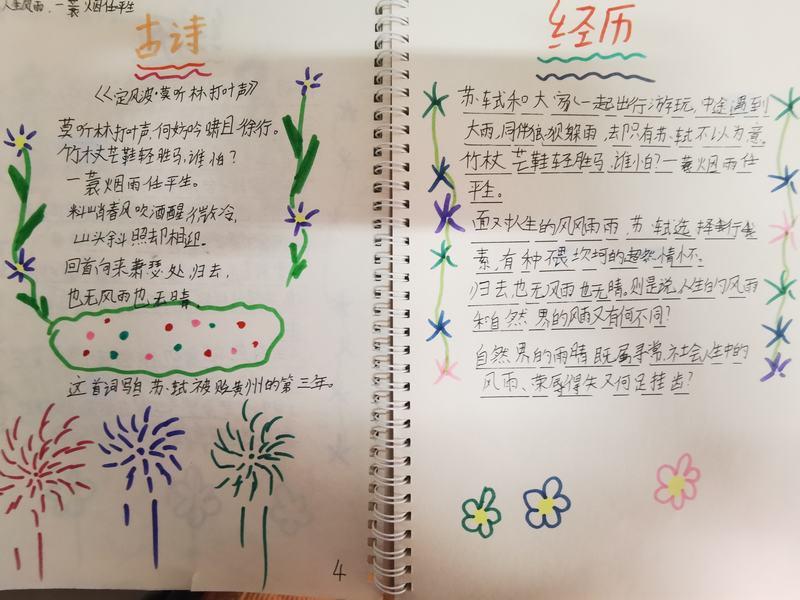 人生风雨，一蓑烟任平生
古诗
《定风波·莫听林打叶声》
莫听林打叶声，何妨吟啸且徐行。
竹杖芒鞋轻胜马，谁怕？
一蓑烟雨任平生。
料峭春风吹酒醒，微冷，
山头斜照却相迎。
回首向来萧瑟处，归去，
也无风雨也无晴。
这首词写自苏轼被贬黄州的第三年。
4
经历
苏轼和大家一起出行游玩，中途遇到
大雨，同伴狼狈躲雨，却只有苏轼不以为意。
竹杖芒鞋轻胜马，谁怕？一蓑烟雨任
平生。
面对人生的风风雨雨，苏轼选择
素，有种 坎坷的超然情怀。
归去，也无风雨也无晴。则是说，人生的风雨
和自然界的风雨又有何不同？
自然界的雨晴既属寻常，社会人生中的
风雨、荣辱得失又何足挂齿？